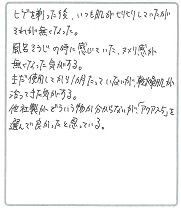 ヒゲを剃った後、いつも肌がヒリヒリしていたが
それが無くなった。
風呂そうじの時に感じていた、ヌメリ感が
無くなった気がする。
まだ使用してから1ヵ月たっていないが、乾燥肌が
治ってきた気がする。
他社製がどういう物か分からないが、「アクアス5」を
選んで良かったと思っている。